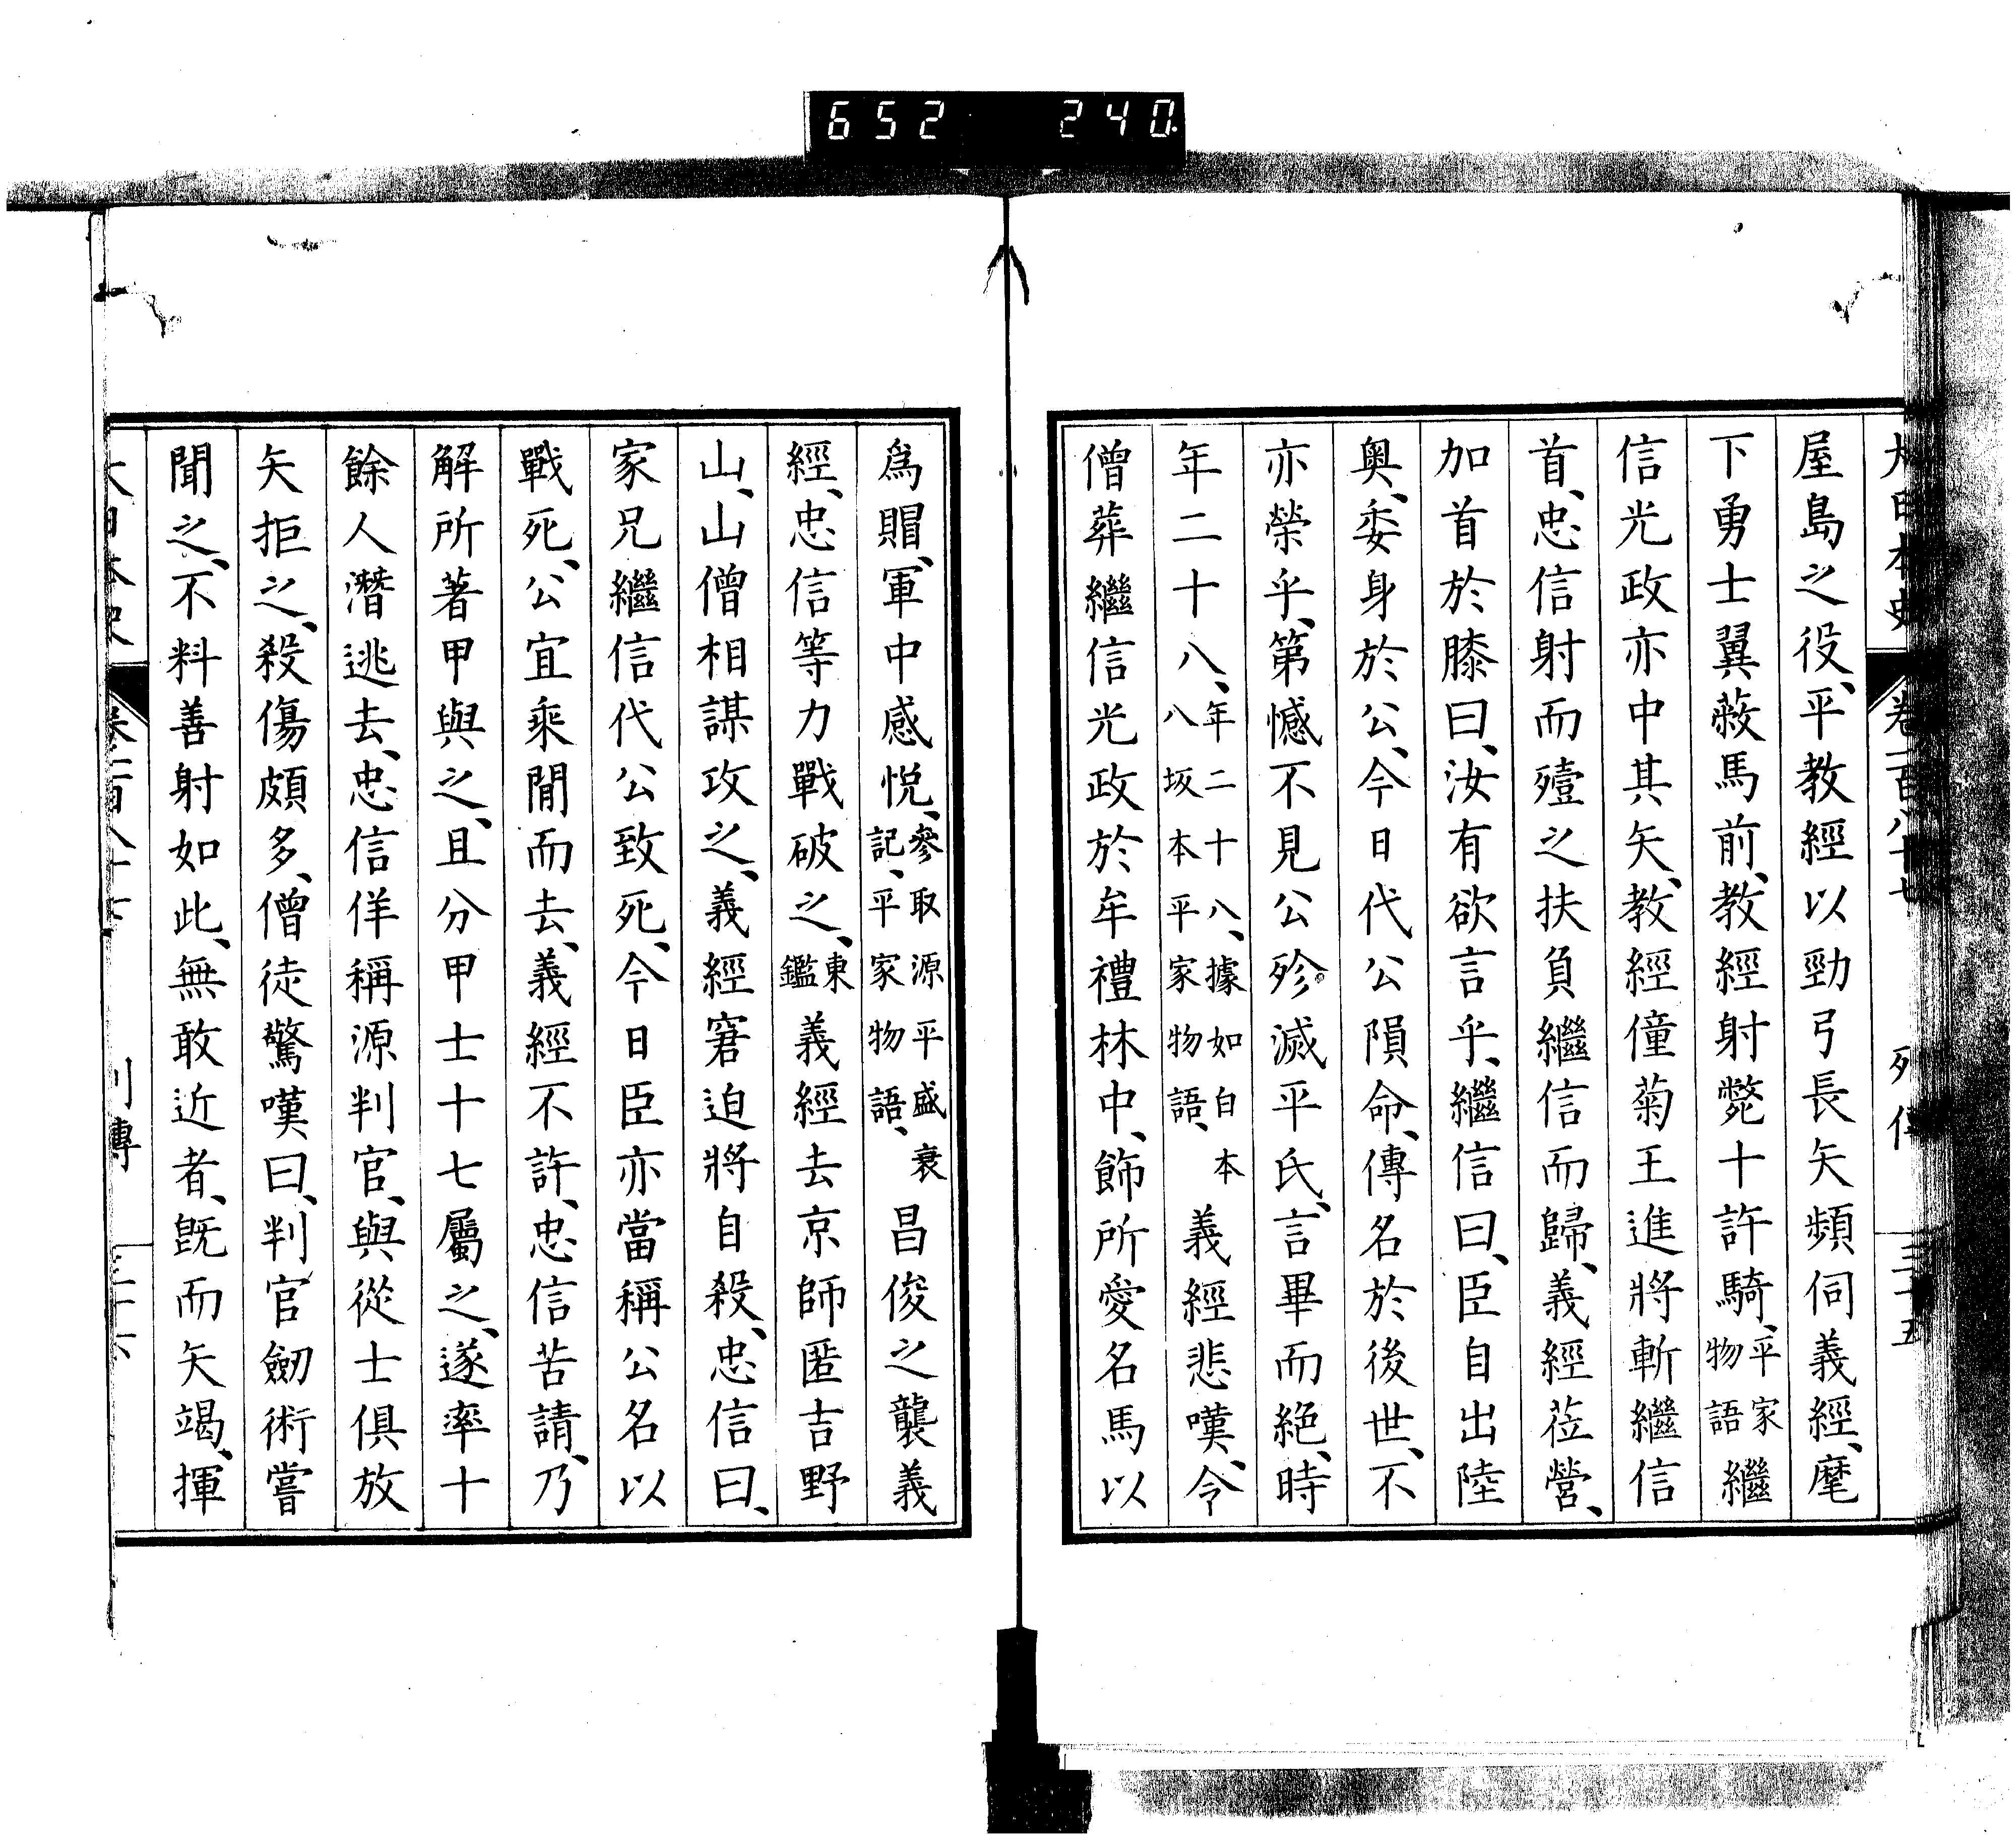 652 240
大日本史 卷一百八十七 列傳 三十五
屋島之役、平教經以勁弓長矢頻伺義經、麾
下勇士翼蔽馬前、教經射斃十許騎、平家物語繼
信光政亦中其矢、教經僮菊王進將斬繼信
首、忠信射而殪之扶負繼信而歸、義經莅營、
加首於膝曰、汝有欲言乎、繼信曰、臣自出陸
奧、委身於公、今日代公隕命、傳名於後世、不
亦榮乎、第憾不見公殄滅平氏、言畢而絕、時
年二十八、年二十八、據如白本八坂本平家物語、義經悲嘆、令
僧葬繼信光政於牟禮林中、飾所愛名馬以
爲賵、軍中感悅、參取源平盛衰記、平家物語、昌俊之襲義
經、忠信等力戰破之、東鑑義經去京師匿吉野
山、山僧相謀攻之、義經窘迫將自殺、忠信曰、
家兄繼信代公致死、今日臣亦當稱公名以
戰死、公宜乘閒而去、義經不許、忠信苦請、乃
解所著甲與之、且分甲士十七屬之、遂率十
餘人潛逃去、忠信佯稱源判官、與從士俱放
矢拒之、殺傷頗多、僧徒驚嘆曰、判官劒術嘗
聞之、不料善射如此、無敢近者、旣而矢竭、揮
大日本史 卷一百八十七 列傳 三十六